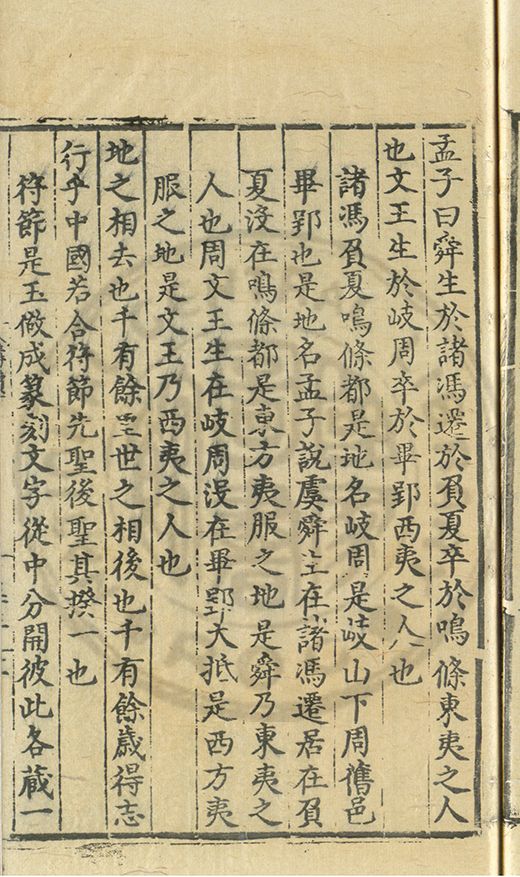 孟子曰舜生於諸馮遷於負夏卒於鳴條東夷之人
也文王生於岐周卒於畢郢西夷之人也
諸馮負夏鳴條都是地名岐周是岐山下周舊邑
畢郢也是地名孟子說虞舜生在諸馮遷居在負
夏沒在鳴條都是東方夷服之地是舜乃東夷之
人也周文王生在岐周沒在畢郢大抵是西方夷
服之地是文王乃西夷之人也
地之相去也千有餘里世之相後也千有餘歲得志
行乎中國若合符節先聖後聖其揆一也
符節是玉做成篆刻文字從中分開彼此各藏一